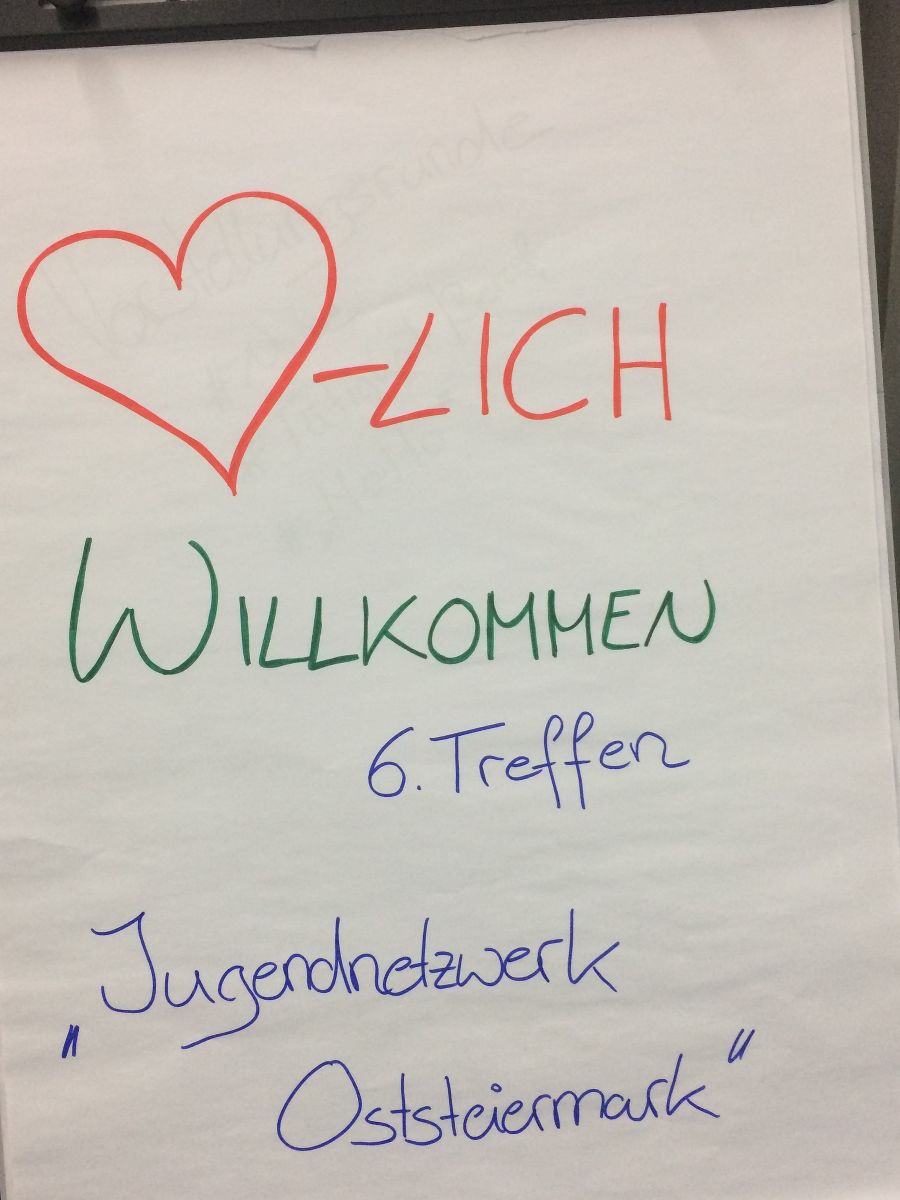 ♥-LICH
WILLKOMMEN
6. Treffen
„Jugendnetzwerk
Oststeiermark"